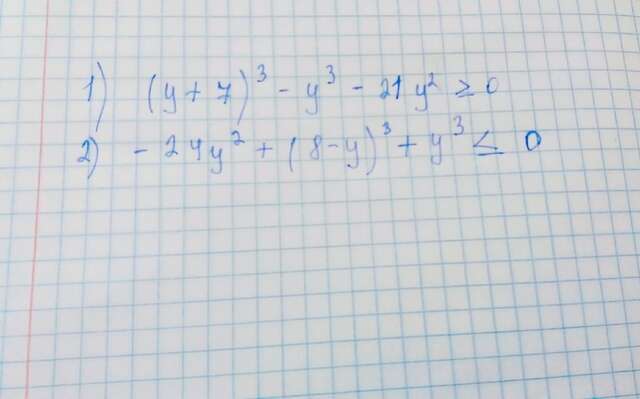 1) (y + 7)³ - y³ - 21y² ≥ 0
2) - 24y² + (8 - y)³ + y³ ≤ 0